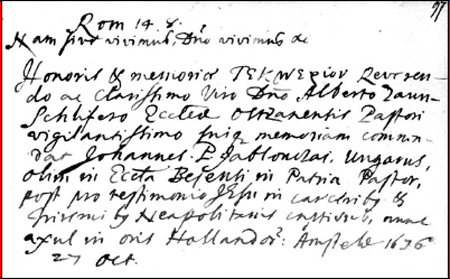 97
Rom 14 8.
Nam sive vivimus, Dño vivimus &c
Honoris & memoriæ ΤΕΚΜΕΡΙΟΝ Reveren-
do ac Clarissimo Viro Dño Alberto Zaun-
Schlifero Ecclæ Pastori
vigilantissimo suiq; memoriam commen-
dat Johannes. P. Jablonczai. Ungarus,
olim in Eccla Besenti in Patria Pastor,
post pro testimonio JEsu in carcerib9 &
triremib9 Neapolitanis captivus, nunc
exul in oris Hollandor: Amstelo 1676
27 Oct.